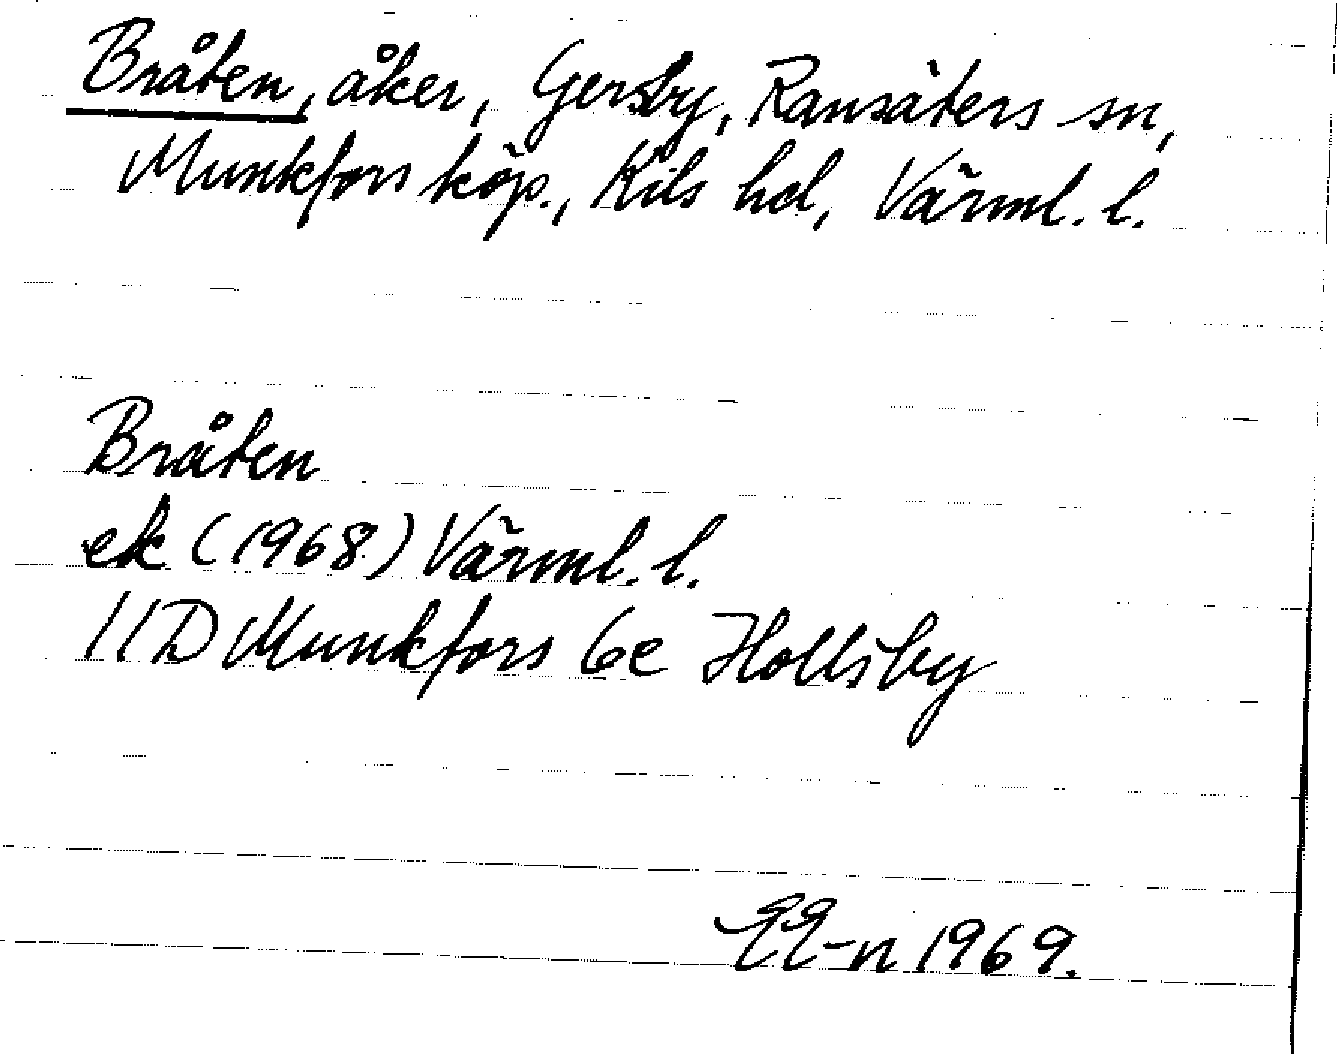 Bråten, åker, Gersby, Ransäters sn,
Munkfors köp., Kils hd, Värml. l.
Bråten
ek (1968) Värml. l.
11D Munkfors 6e Hollsby
EE-n 1969.